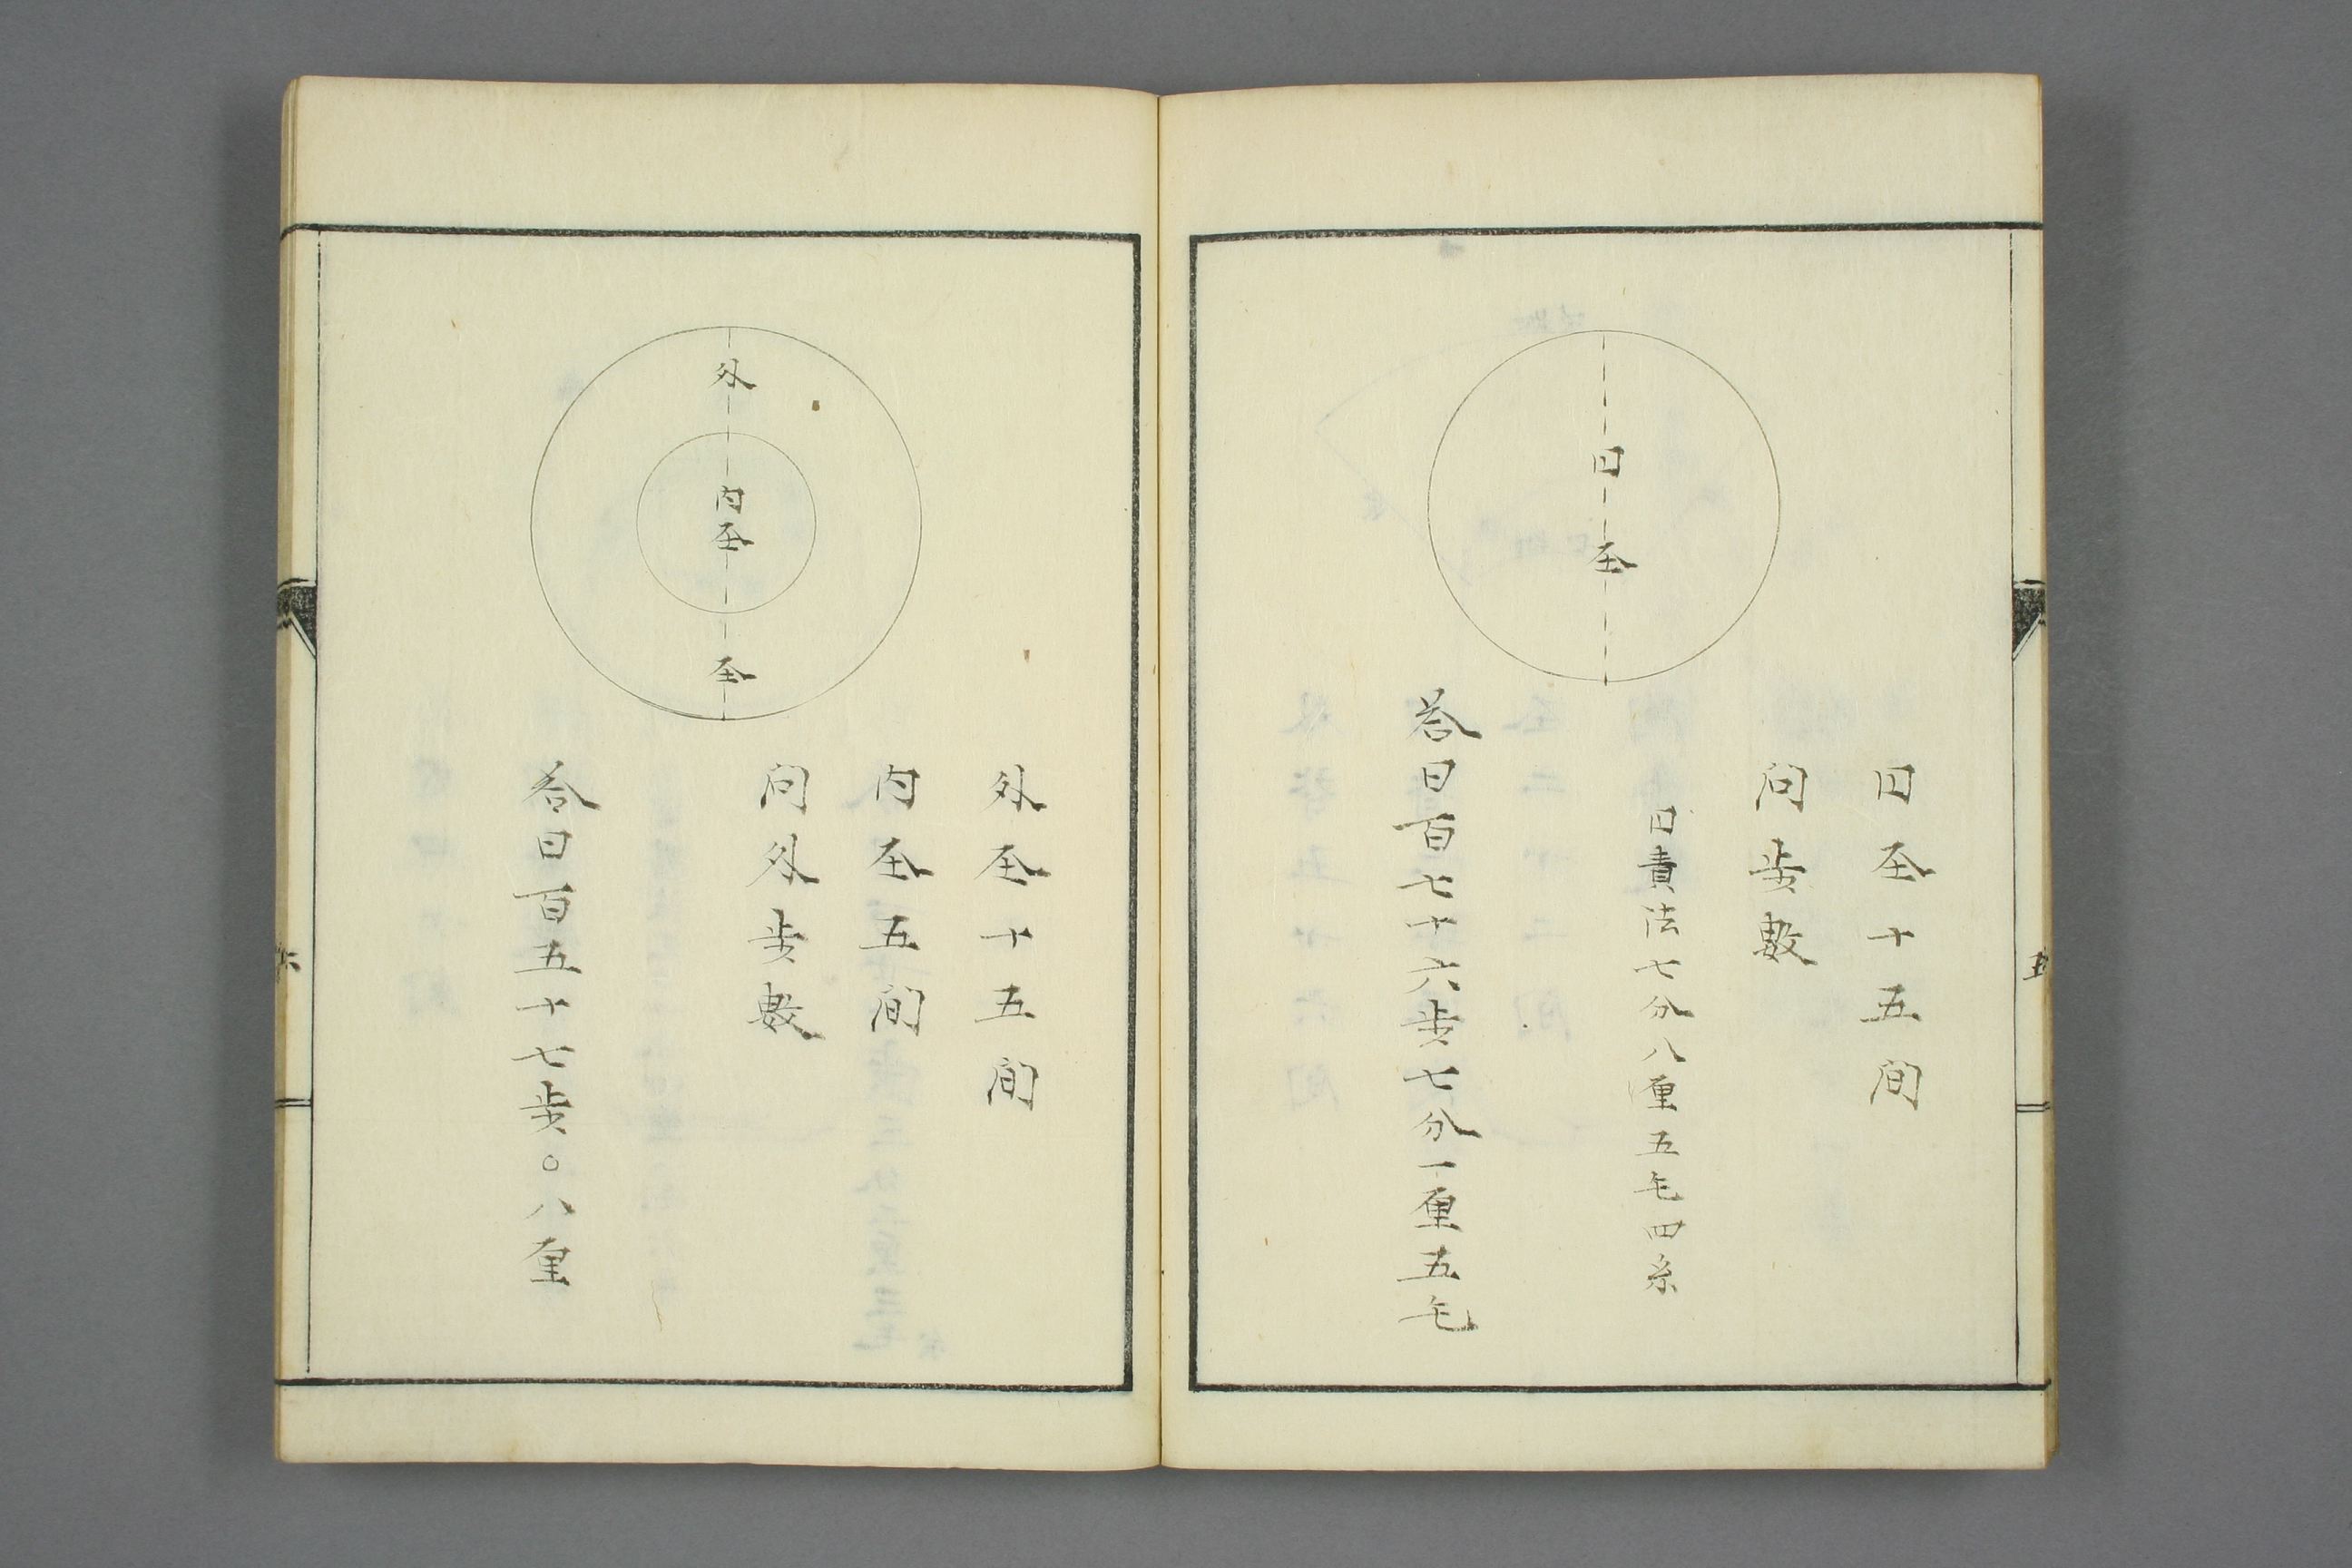 円
圣
円圣十五間
問歩數
円責法七分八厘五毛四糸
荅曰百七十六歩七分一厘五毛
五
外
内圣
圣
外圣十五間
内圣五間
問外歩數
荅曰百五十七歩〇八厘
六